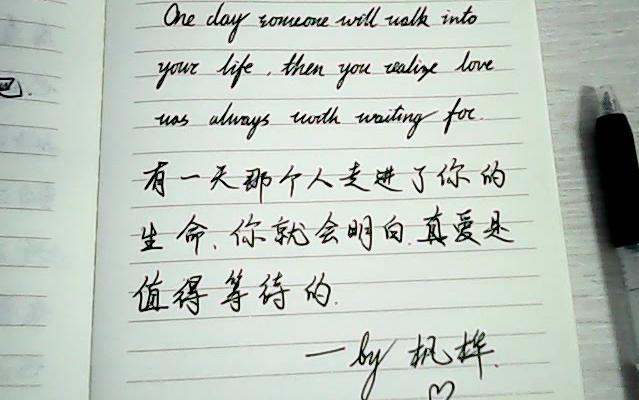 One day someone will walk into
your life, then you realize love
was always worth waiting for.
有一天那个人走进了你的
生命、你就会明白.真爱是
值得等待的.
—by 枫桦.